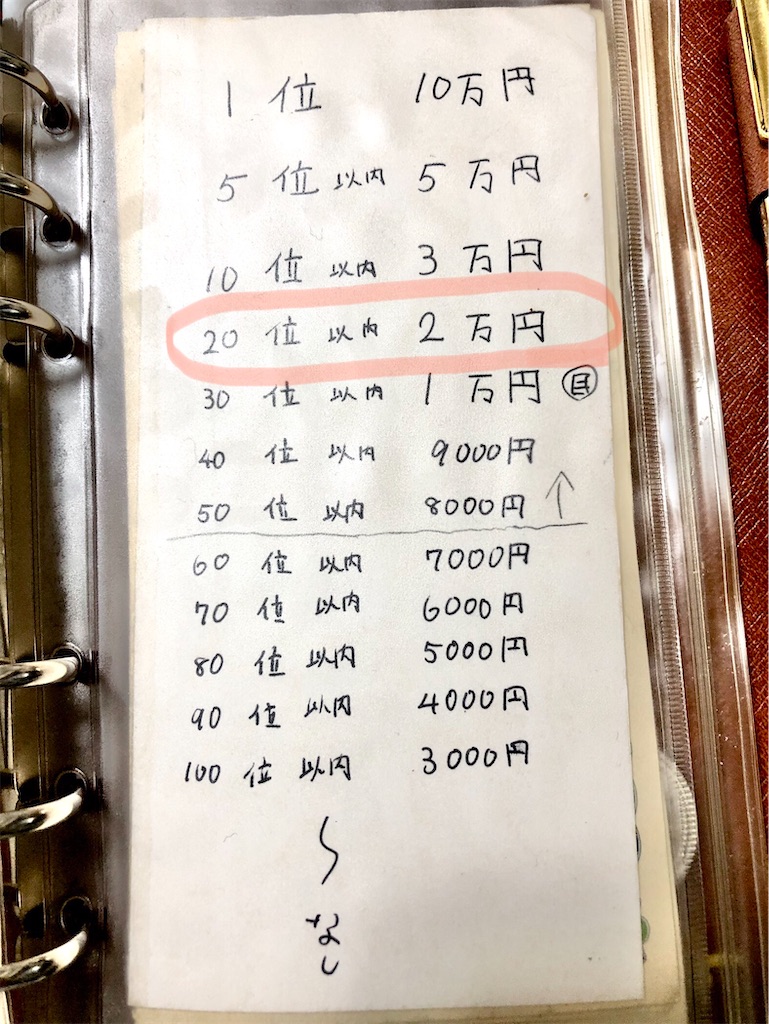 1 位 10万円
5 位 以内 5 万円
10 位 以内 3 万円
20 位 以内 2 万円
30 位 以内 1 万円 目
40 位 以内 9000円
50 位 以内 8000円 ↑
60 位 以内 7000円
70 位 以内 6000円
80 位 以内 5000円
90 位 以内 4000円
100 位 以内 3000円
〜
なし